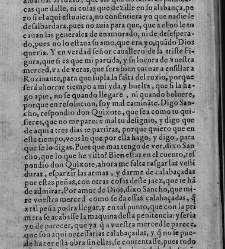 cas que dalle, ni colas que dezille en su alabança, pe-
ro si el aqui estuuiera, no consintiera yo que nadie le
desalbardara, pues no auia para que, que a el no le to-
cauan las generales de enamorado, ni de desespera-
do, pues no lo estaua su amo, que era yo, quado Dios
queria. Y en verdad señor cauallero de la triste Fi-
gura, que si es que mi partida, y su locura de vuestra
merced, va de veras, que serà bien tornar a ensillar a
Rozinante, para que supla la falta del ruzio, porque
serà ahorrar tiempo a mi yda, y buelta, que si la ha-
go a pie, no se quando llegare, ni quando boluere,
porque en resolucion, soy mal caminãte. Digo San-
cho, respondio don Quixote, que sea como tu qui-
sieres, que no me parece mal tu designio, y digo que
de aqui a tres dias te partiras, porque quiero que en
este tiempo, veas lo que por ella hago, y digo, para
que se lo digas. Pues que mas tengo de ver, dixo San
cho, que lo que he visto? Bien estas en el cuento, res
pondio don Quixote, aora me falta rasgar las vesti
duras, esparzir las armas, y darme de calabaçadas
por estas peñas, con otras cosas deste jaez, que te hã
de admirar. Por amor de Dios, dixo Sancho, que mi-
re vuestra merced como se da essas calabaçadas, q̃
a tal peña podra llegar, y en tal punto, que con la pri
mera se acabasse la maquina desta penitencia: y seria
yo de parecer, que ya q̃ a vuestra merced le parece,
que son aqui necessarias calabaçadas, y que no se pue
de hazer esta obra sin ellas, se contentasse, pues todo